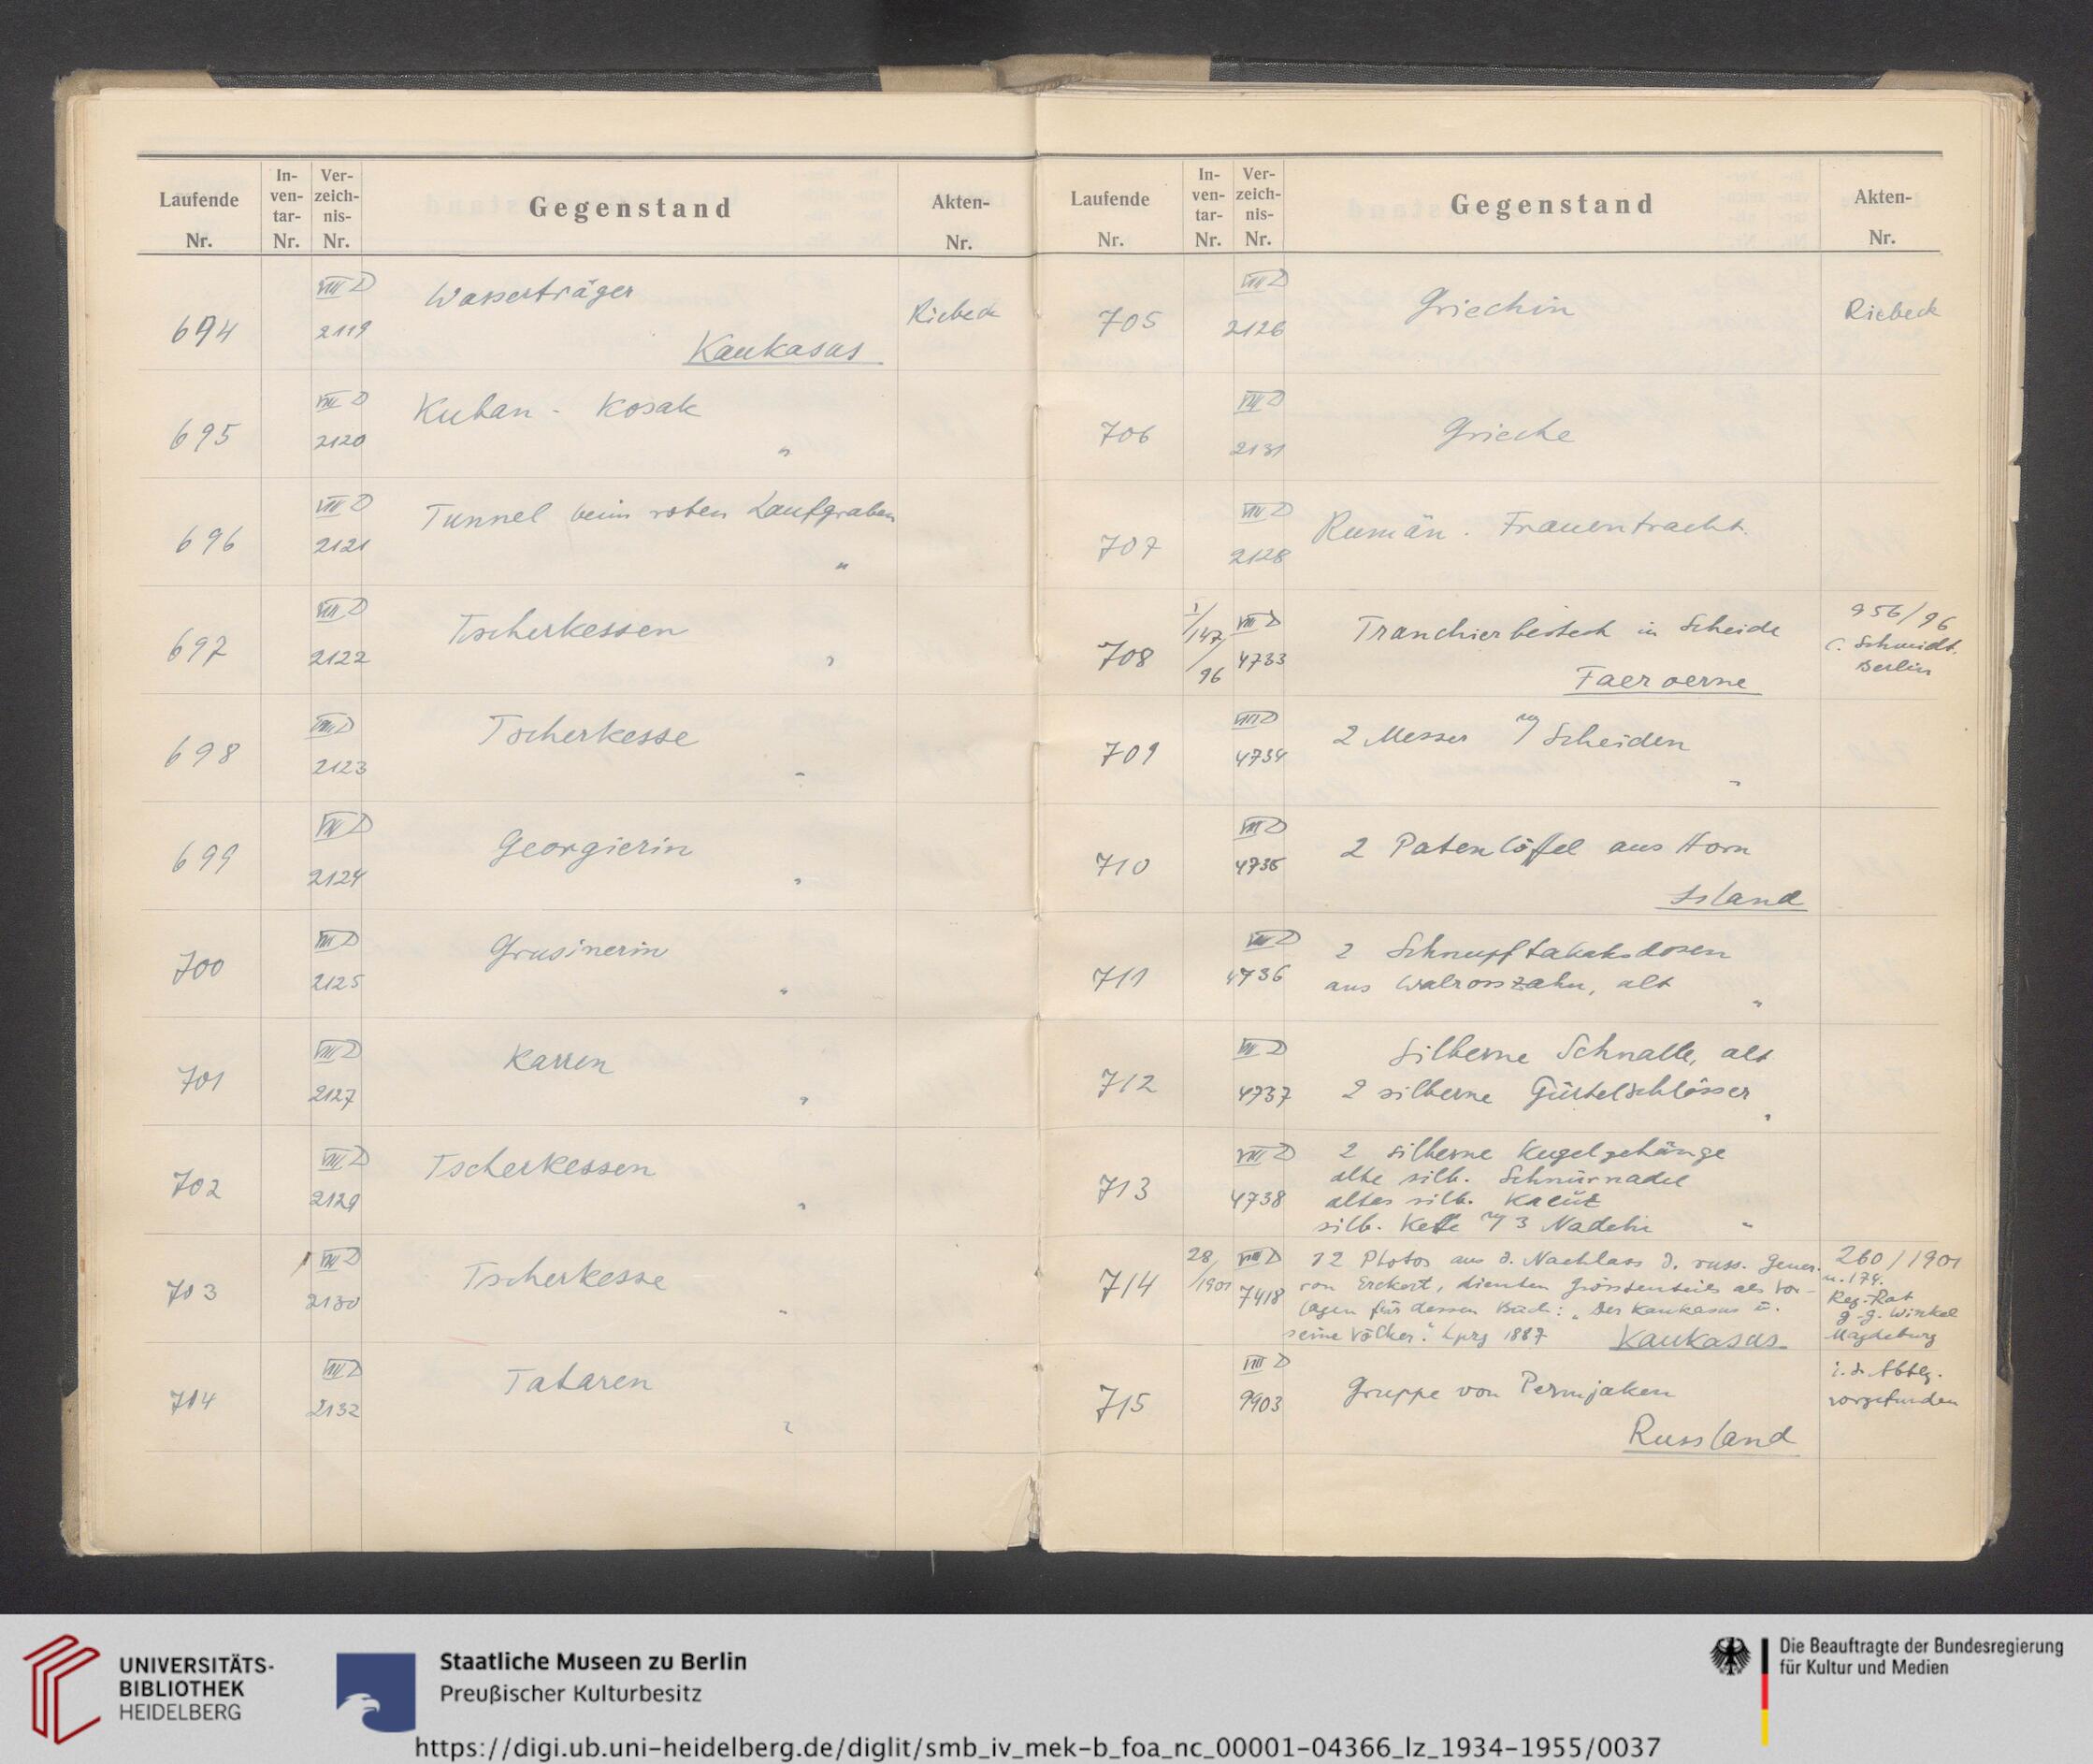 Laufende Nr.
In-ven-tar-Nr.
Ver-zeich-nis-Nr.
Gegenstand
Akten-Nr.
694 VIII D 2119 Wasserträger Kaukasus Riebeck
695 VIII D 2120 Kuban - Kosak "
696 VIII D 2121 Tunnel beim roten Laufgraben "
697 VIII D 2122 Tscherkessen "
698 VIII D 2123 Tscherkesse "
699 VIII D 2124 Georgierin "
700 VIII D 2125 Grusinerin "
701 VIII D 2127 Karren "
702 VIII D 2129 Tscherkessen "
703 VIII D 2130 Tscherkesse "
704 VIII D 2132 Tataren "
Laufende Nr.
In-ven-tar-Nr.
Ver-zeich-nis-Nr.
Gegenstand
Akten-Nr.
705 VIII D 2126 Griechin Riebeck
706 VIII D 2131 Grieche
707 VIII D 2128 Rumän. Frauentracht.
708 I/147/96 VIII D 4733 Tranchierbesteck in Scheide
Faeroerne
956/96
C. Schmidt.
Berlin
709 VIII D 4734 2 Messer m Scheiden "
710 VIII D 4735 2 Patenlöffel aus Horn
Island
711 VIII D 4736 2 Schnupftabaksdosen
aus Walrosszahn, alt "
712 VIII D 4737 Silberne Schnalle, alt
2 silberne Gürtelschlösser "
713 VIII D 4738 2 silberne Kugelgehänge
alte silb. Schnürnadel
altes silb. Kreuz
silb. Kette m 3 Nadeln "
714 28/1901 VIII D 7418 12 Photos aus d. Nachlass d. russ. Gener.
von Erckert, dienten grösstenteils als Vor-
lagen für dessen Buch: "Der Kaukasus u.
seine Völker." Lpzg 1887 Kaukasus
260/1901
u. 174.
Reg.-Rat
g. g. Winkel
Magdeburg
715 VIII D 9903 Gruppe von Permjaken
Russland
i. d. Abtlg.
vorgefunden
UNIVERSITÄTS-
BIBLIOTHEK
HEIDELBERG
Staatliche Museen zu Berlin
Preußischer Kulturbesitz
Die Beauftragte der Bundesregierung
für Kultur und Medien
https://digi.ub.uni-heidelberg.de/diglit/smb_iv_mek-b_foa_nc_00001-04366_lz_1934-1955/0037